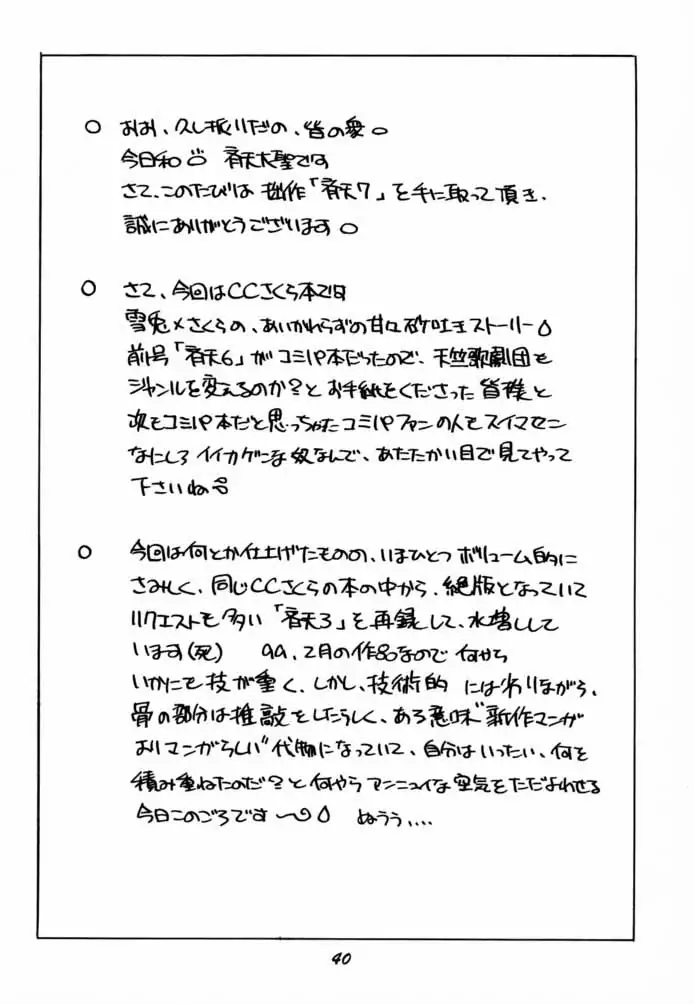 ○ おお、久し振りだの、皆の衆○
今日和 斉天大聖です
さて、このたびは 拙作「斉天7」を手に取って頂き、
誠にありがとうございます○
○ さて、今回はCCさくら本です
雪兎×さくらの、あいかわらずの甘々砂吐きストーリー
前号「斉天6」がコミパ本だったので、天竺歌劇団も
ジャンルを変えるのか?と お手紙をくださった皆様と
次もコミパ本だと思っちゃたコミパファンの人もスイマセン
なにしろ イイカゲンな奴なんで、あたたかい目で見てやって
下さいね
○ 今回は何とか仕上げたものの、いまひとつ ボリューム的に
さみしく、同じCCさくらの本の中から、絶版となっていて
リクエストも多い「斉天3」を再録して、水増しして
います(死) 99、2月の作品なので 何やら
いかにも技が重く、しかし、技術的 には劣りながら、
骨の部分は推敲をしたらしく、ある意味"新作マンガ
よりマンガらしい"代物になっていて、自分はいったい、何を
積み重ねたのだ?と何やら アンニュイな空気をただよわせる
今日このごろです 〜 ぬうう、...
40